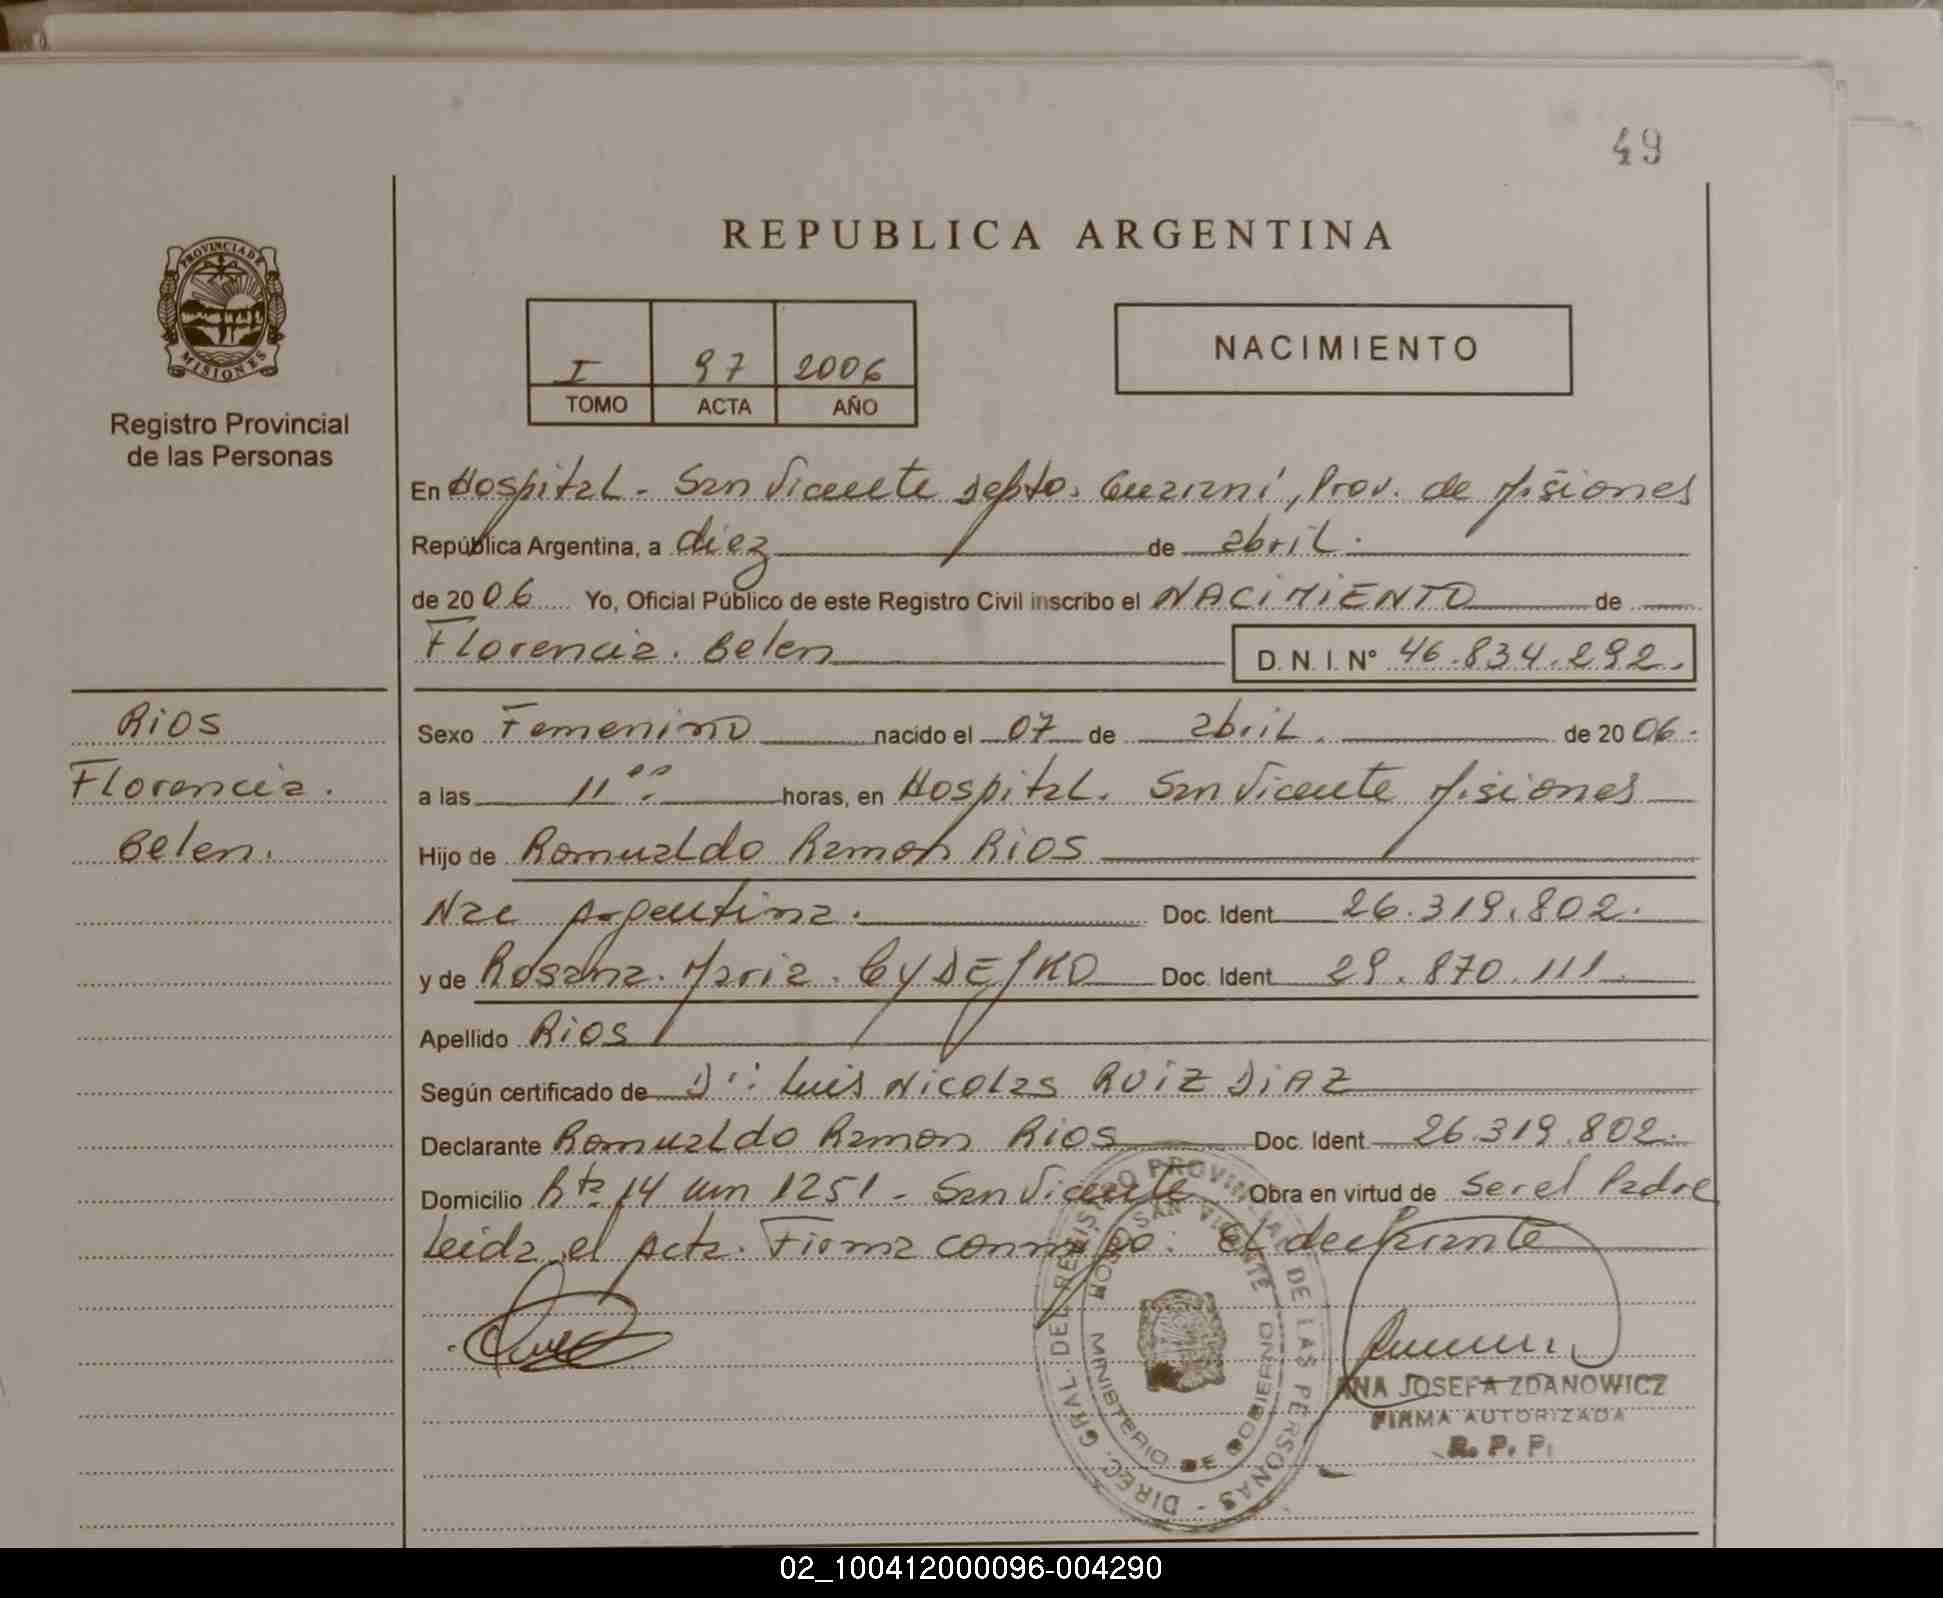 49
REPUBLICA ARGENTINA
PROVINCIA DE MISIONES
Registro Provincial
de las Personas
I 97 2006
TOMO ACTA AÑO
NACIMIENTO
En Hospital - San Vicente Depto. Guarani, Prov. de Misiones
República Argentina, a diez de abril.
de 2006 Yo, Oficial Público de este Registro Civil inscribo el NACIMIENTO de
Florencia. Belen D.N.I. Nº 46.834.292.
RIOS
Florencia.
Belen.
Sexo Femenino nacido el 07 de abril. de 2006.
a las 11⁰⁰. horas, en Hospital. San Vicente Misiones
Hijo de Romualdo Ramon RIOS
Nac Argentina. Doc. Ident. 26.319.802.
y de Rosana. Maria. Doc. Ident. 29.870.111.
Apellido RIOS
Según certificado de Dr: Luis Nicolas RUIZ DIAZ
Declarante Romualdo Ramon RIOS Doc. Ident. 26.319.802.
Domicilio Rta 14 km 1251 - San Vicente Obra en virtud de Ser el Padre
Leida el Acta. Firma conmigo: El declarante
DIREC. GRAL. DEL REGISTRO PROVINCIAL DE LAS PERSONAS -
HOSP. SAN VICENTE
MINISTERIO DE GOBIERNO
ANA JOSEFA ZDANOWICZ
FIRMA AUTORIZADA
R. P. P.
02_100412000096-004290